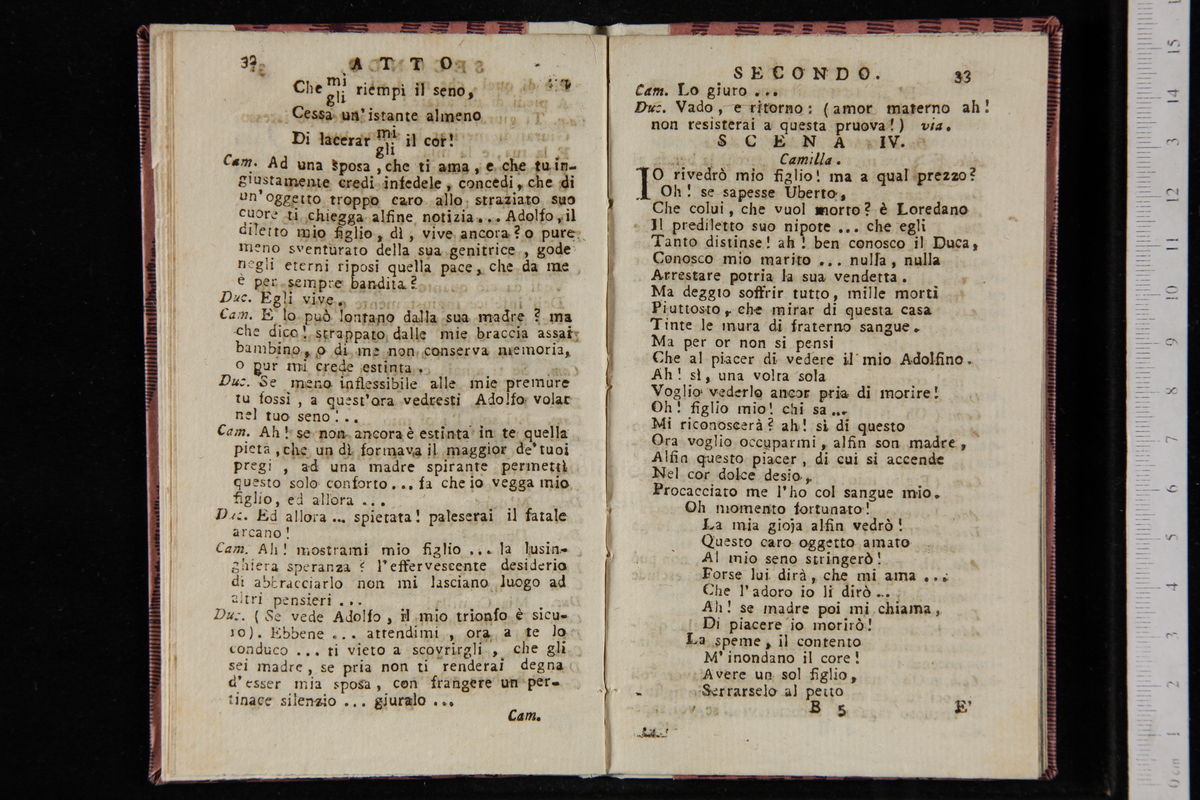 32 ATTO
Che mi gli riempi il seno,
Cessa un'istante almeno
Di lacerar mi gli il cor!
Cam. Ad una sposa, che ti ama, e che tu in-
giustamente credi infedele, concedi, che di
un'oggetto troppo caro allo straziato suo
cuore ti chiegga alfine notizia... Adolfo, il
diletto mio figlio, dì, vive ancora? o pure
meno sventurato della sua genitrice, gode
negli eterni riposi quella pace, che da me
è per sempre bandita?
Duc. Egli vive.
Cam. E lo può lontano dalla sua madre? ma
che dico! strappato dalle mie braccia assai
bambino, o di me non conserva memoria,
o pur mi crede estinta.
Duc. Se meno inflessibile alle mie premure
tu fossi, a quest'ora vedresti Adolfo volar
nel tuo seno!..
Cam. Ah! se non ancora è estinta in te quella
pietà, che un dì formava il maggior de' tuoi
pregi, ad una madre spirante permetti
questo solo conforto... fa che io vegga mio
figlio, ed allora ...
Duc. Ed allora ... spietata! paleserai il fatale
arcano!
Cam. Ah! mostrami mio figlio ... la lusin-
ghiera speranza? l'effervescente desiderio
di abbracciarlo non mi lasciano luogo ad
altri pensieri ...
Duc. (Se vede Adolfo, il mio trionfo è sicu-
ro). Ebbene ... attendimi, ora a te lo
conduco ... ti vieto a scovrirgli, che gli
sei madre, se pria non ti renderai degna
d'esser mia sposa, con frangere un per-
tinace silenzio ... giuralo ...
Cam.
SECONDO. 33
Cam. Lo giuro ...
Duc. Vado, e ritorno: (amor materno ah!
non resisterai a questa pruova!) via.
SCENA IV.
Camilla.
IO rivedrò mio figlio! ma a qual prezzo?
Oh! se sapesse Uberto,
Che colui, che vuol morto? è Loredano
Il prediletto suo nipote ... che egli
Tanto distinse! ah! ben conosco il Duca,
Conosco mio marito ... nulla, nulla
Arrestare potria la sua vendetta.
Ma deggio soffrir tutto, mille morti
Piuttosto, che mirar di questa casa
Tinte le mura di fraterno sangue.
Ma per or non si pensi
Che al piacer di vedere il mio Adolfino.
Ah! sì, una volta sola
Voglio vederlo ancor pria di morire!
Oh! figlio mio! chi sa ...
Mi riconoscerà? ah! sì di questo
Ora voglio occuparmi, alfin son madre,
Alfin questo piacer, di cui si accende
Nel cor dolce desio,
Procacciato me l'ho col sangue mio.
Oh momento fortunato!
La mia gioja alfin vedrò!
Questo caro oggetto amato
Al mio seno stringerò!
Forse lui dirà, che mi ama ...
Che l'adoro io li dirò ...
Ah! se madre poi mi chiama,
Di piacere io morirò!
La speme, il contento
M'inondano il core!
Avere un sol figlio,
Serrarselo al petto
B 5 E'